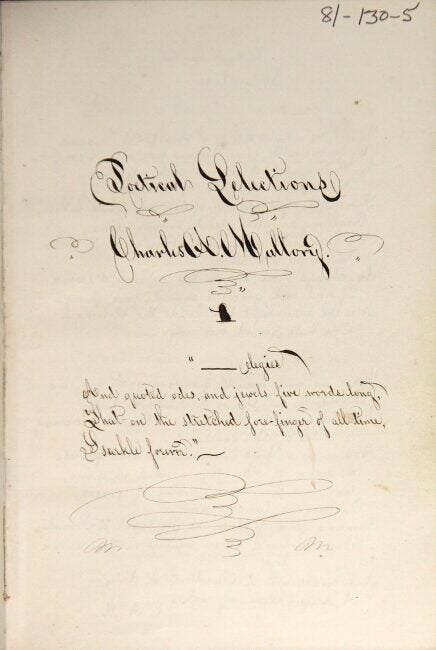 81-130-5
Poetical Selections
Charles H. Mallory.
1
"— elegies
And quoted odes, and jewels five words long,
That on the stretched fore-finger of all time,
Sparkle forever."—
M. M.